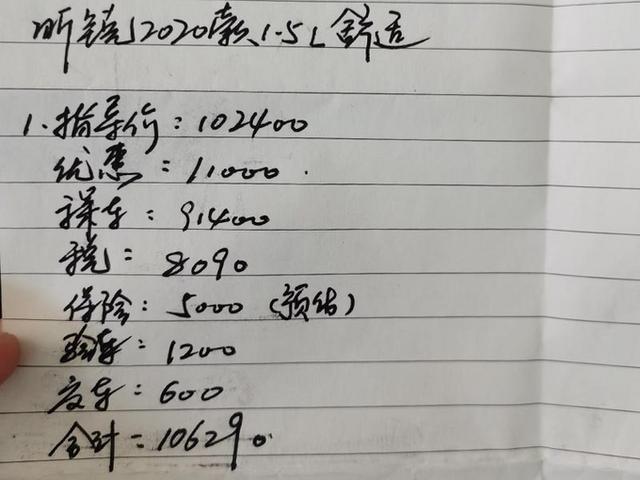 昕锐2020款1.5L舒适
1.指导价：102400
优惠：11000.
裸车：91400
税：8090
保险：5000（预估）
验车：1200
交车：600
合计=106290